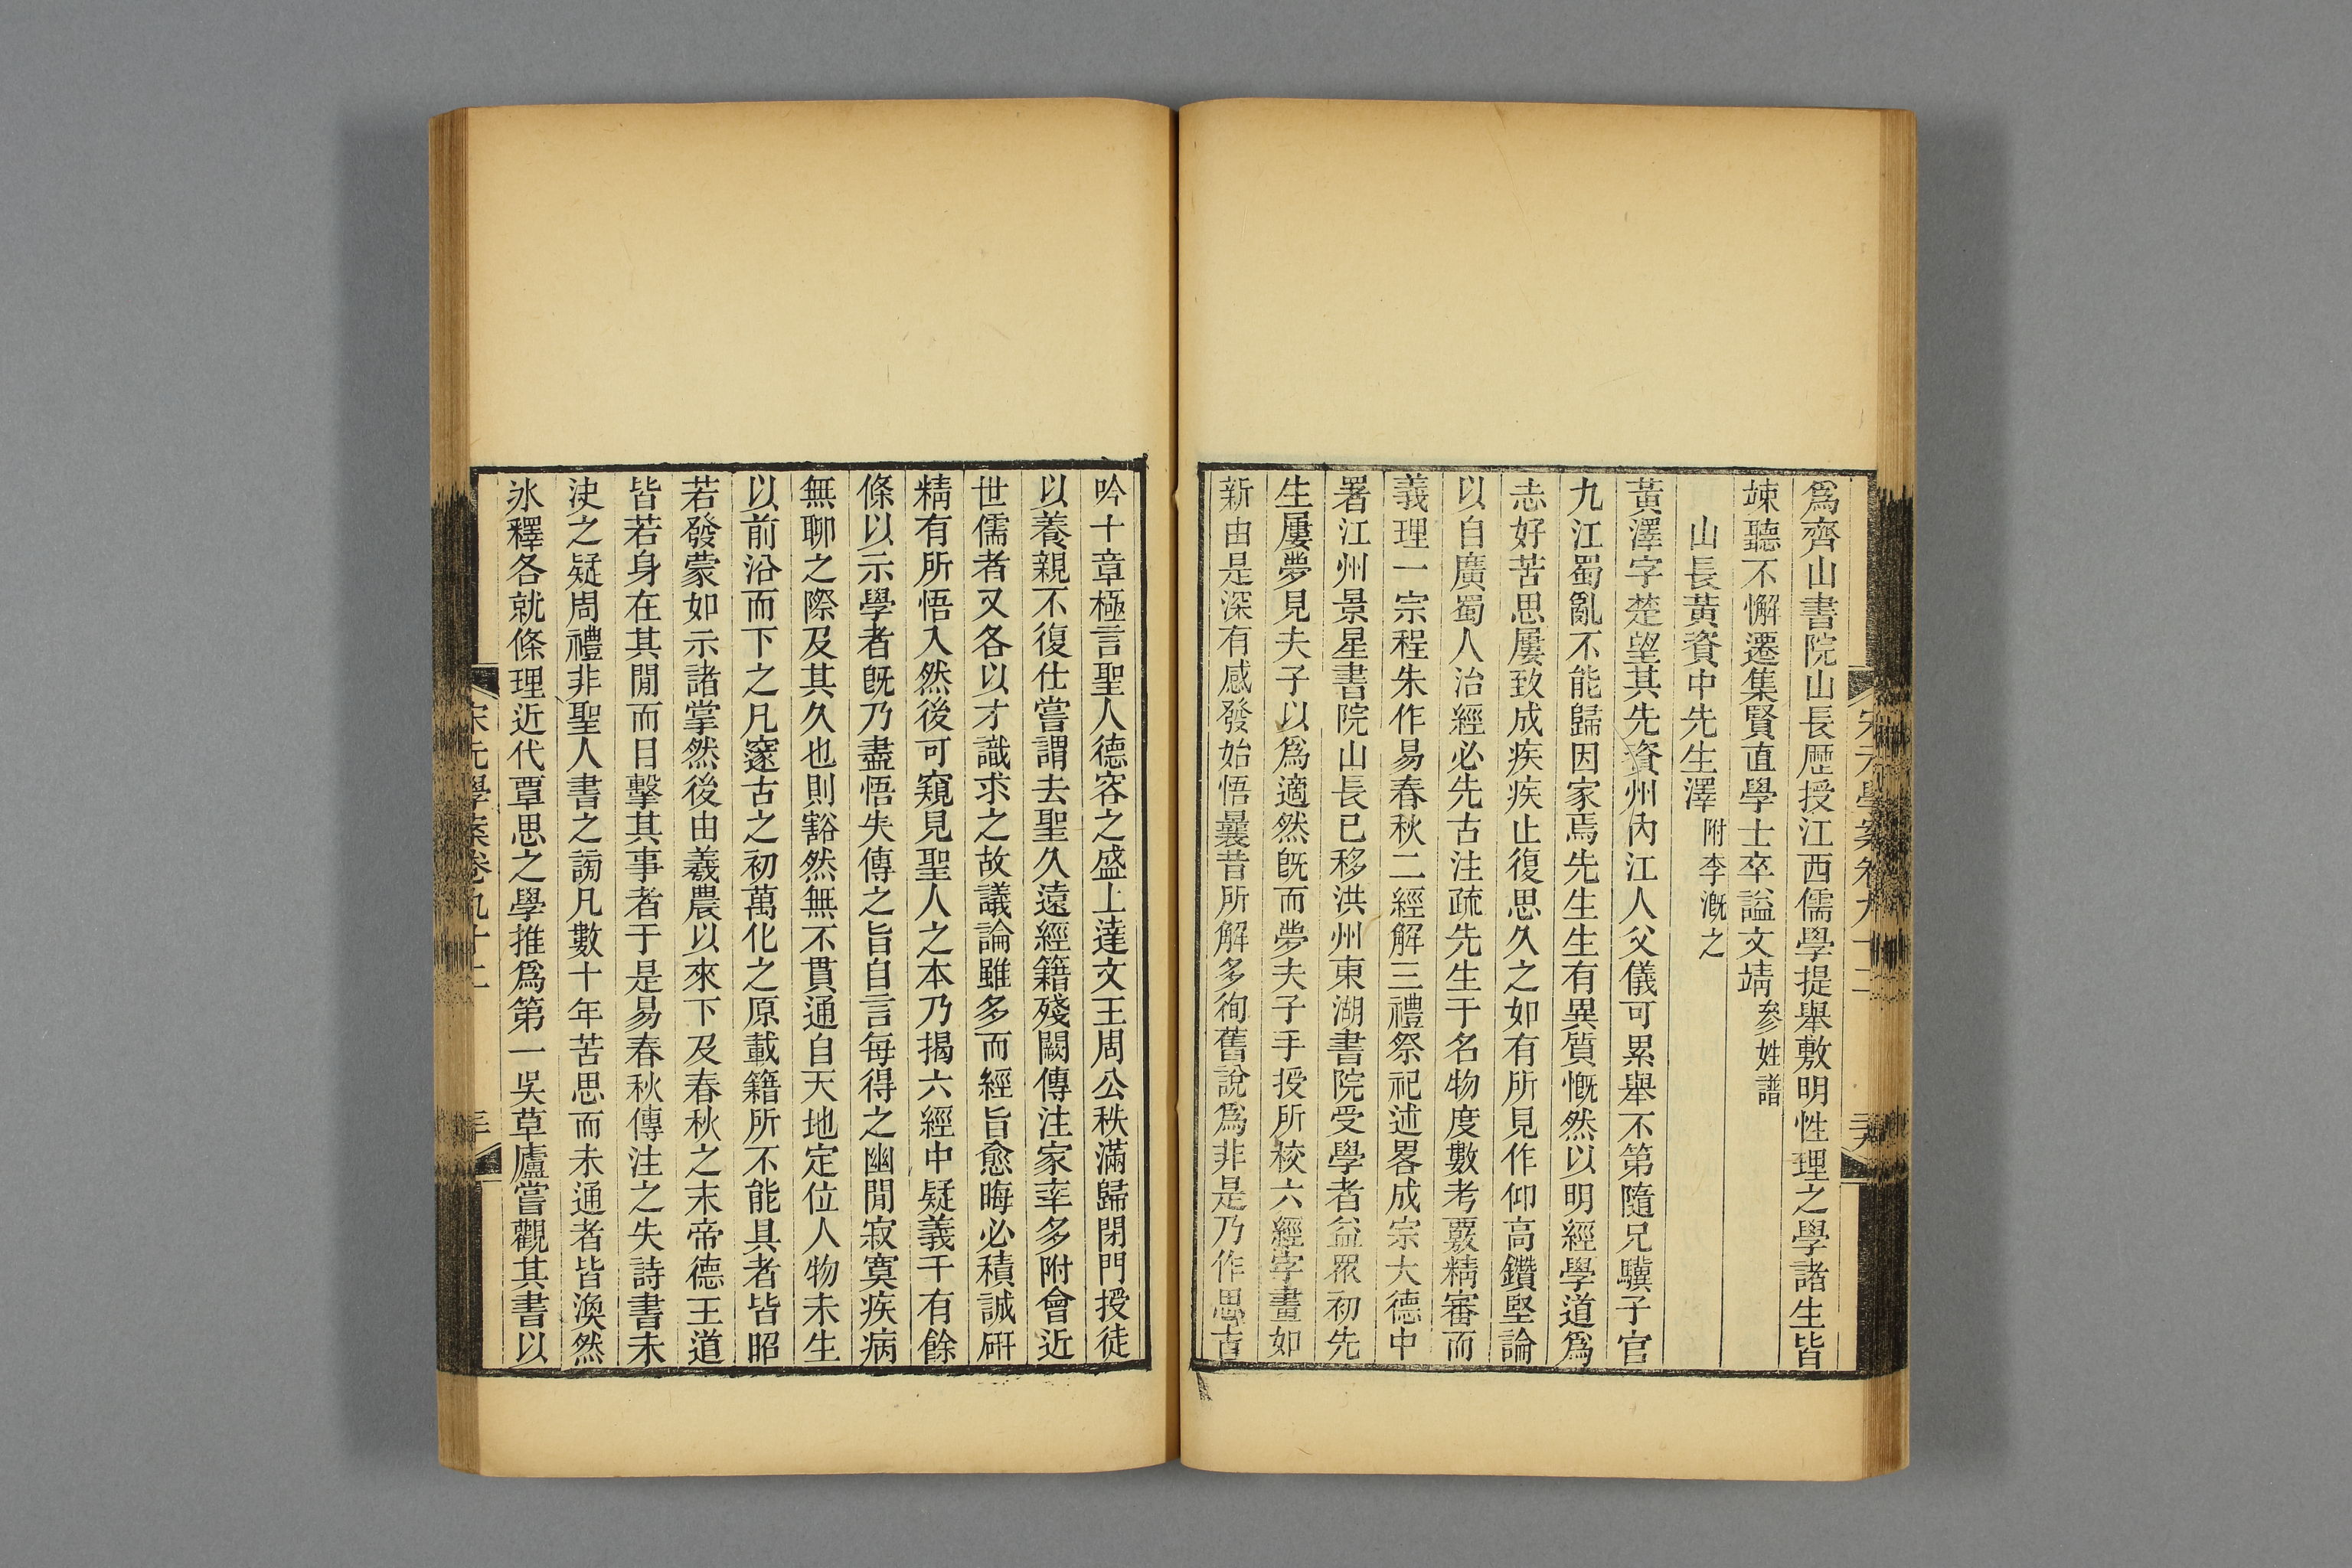 爲齊山書院山長歷授江西儒學提舉敷明性理之學諸生皆
竦聽不懈遷集賢直學士卒謚文靖參姓譜
山長黃資中先生澤附李漑之
黃澤字楚望其先資州內江人父儀可累舉不第隨兄驥子官
九江蜀亂不能歸因家焉先生生有異質慨然以明經學道爲
志好苦思屢致成疾疾止復思久之如有所見作仰高鑽堅論
以自廣蜀人治經必先古注疏先生于名物度數考覈精審而
義理一宗程朱作易春秋二經解三禮祭祀述畧成宗大德中
署江州景星書院山長已移洪州東湖書院受學者益眾初先
生屢夢見夫子以爲適然旣而夢夫子手授所校六經字畫如
新由是深有感發始悟曩昔所解多徇舊說爲非是乃作思古
吟十章極言聖人德容之盛上達文王周公秩滿歸閉門授徒
以養親不復仕嘗謂去聖久遠經籍殘闕傳注家率多附會近
世儒者又各以才識求之故議論雖多而經旨愈晦必積誠硏
精有所悟入然後可窺見聖人之本乃揭六經中疑義千有餘
條以示學者旣乃盡悟失傳之旨自言每得之幽閒寂寞疾病
無聊之際及其久也則豁然無不貫通自天地定位人物未生
以前沿而下之凡邃古之初萬化之原載籍所不能具者皆昭
若發蒙如示諸掌然後由羲農以來下及春秋之末帝德王道
皆若身在其閒而目擊其事者于是易春秋傳注之失詩書未
決之疑周禮非聖人書之謗凡數十年苦思而未通者皆渙然
冰釋各就條理近代覃思之學推爲第一吳草廬嘗觀其書以
宋元學案卷九十二